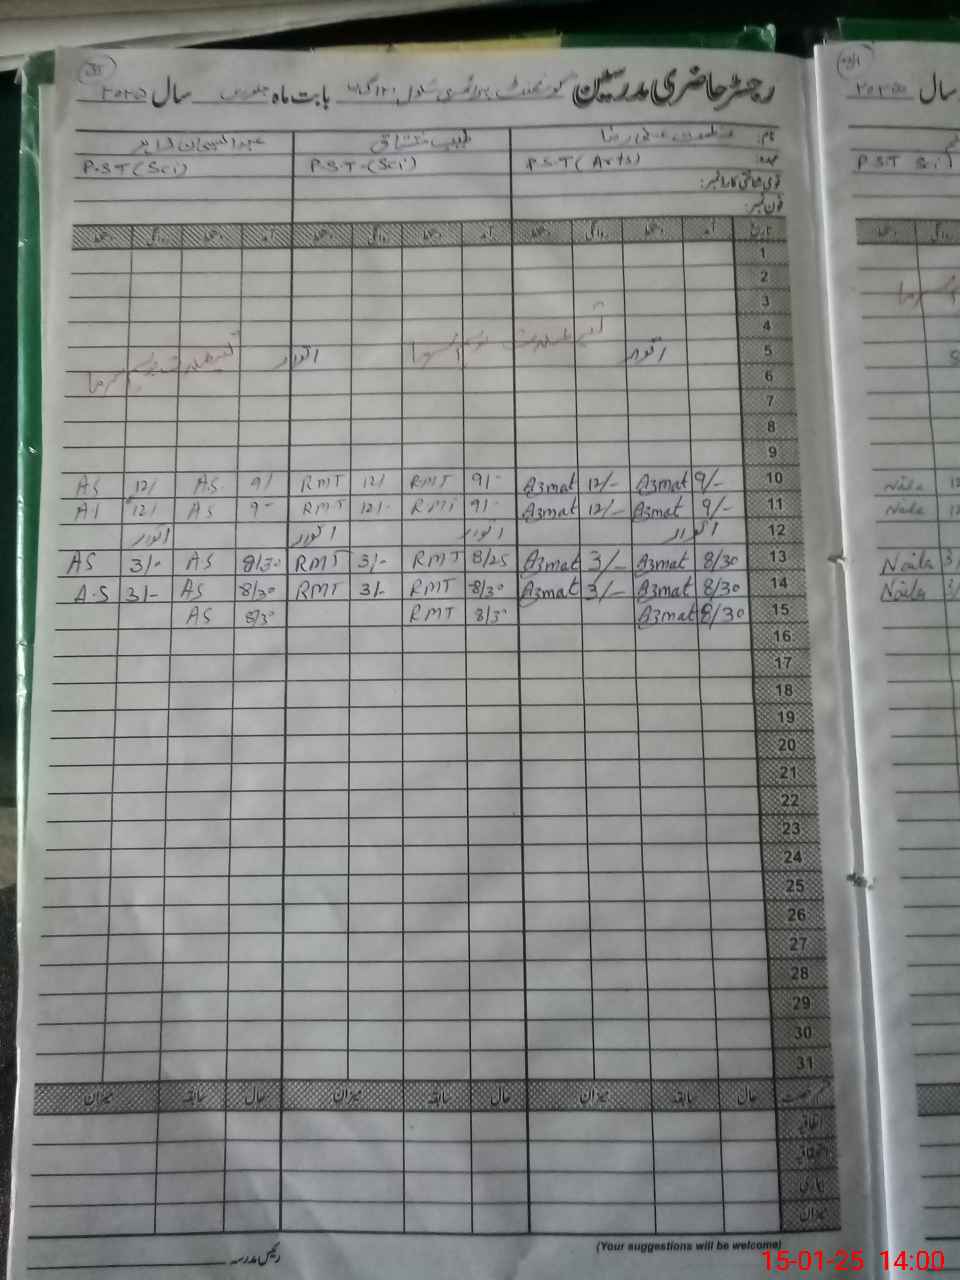 رجسٹر حاضری مدرسین گورنمنٹ پرائمری سکول بابت ماہ جنوری سال ۲۰۲۵
نام: عظمت علی رضا طیب مشتاق
عہدہ: P.S.T (Arts) P.S.T-(Sci) P.S.T (Sci)
قومی شناختی کارڈ نمبر:
فون نمبر:
تاریخ آمد دستخط روانگی دستخط آمد دستخط روانگی دستخط آمد دستخط روانگی دستخط
1
2
3
4
5 اتوار اتوار
6
7
8
9
10 9/- Azmat 12/- Azmat 9/- RMT 12/ RMT 9/ AS 12/ AS
11 9/- Azmat 12/- Azmat 9/- RMT 12/- RMT 9- AS 12/ AS
12 اتوار اتوار اتوار اتوار
13 8/30 Azmat 3/- Azmat 8/25 RMT 3/- RMT 8/30 AS 3/- AS
14 8/30 Azmat 3/- Azmat 8/30 RMT 3/- RMT 8/30 AS 3/- A.S
15 8/30 Azmat 8/30 RMT 8/30 AS
16
17
18
19
20
21
22
23
24
25
26
27
28
29
30
31
قسم رخصت حال سابقہ میزان حال سابقہ میزان حال سابقہ میزان
اتفاقیہ
استحقاقیہ
بیماری
میزان
(Your suggestions will be welcome)
رئیس مدرسہ
سال ۲۰۲۵
P.S.T Sci
Naila 12
Naila
Naila 3/
Naila 3/
15-01-25 14:00